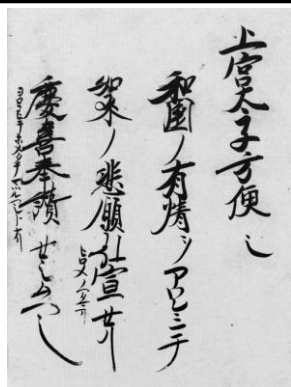 上宮太子方便シ
和國ノ有情ヲアワレミテ
如来ノ悲願弘宣セリ
慶喜奉讃セシムヘシ